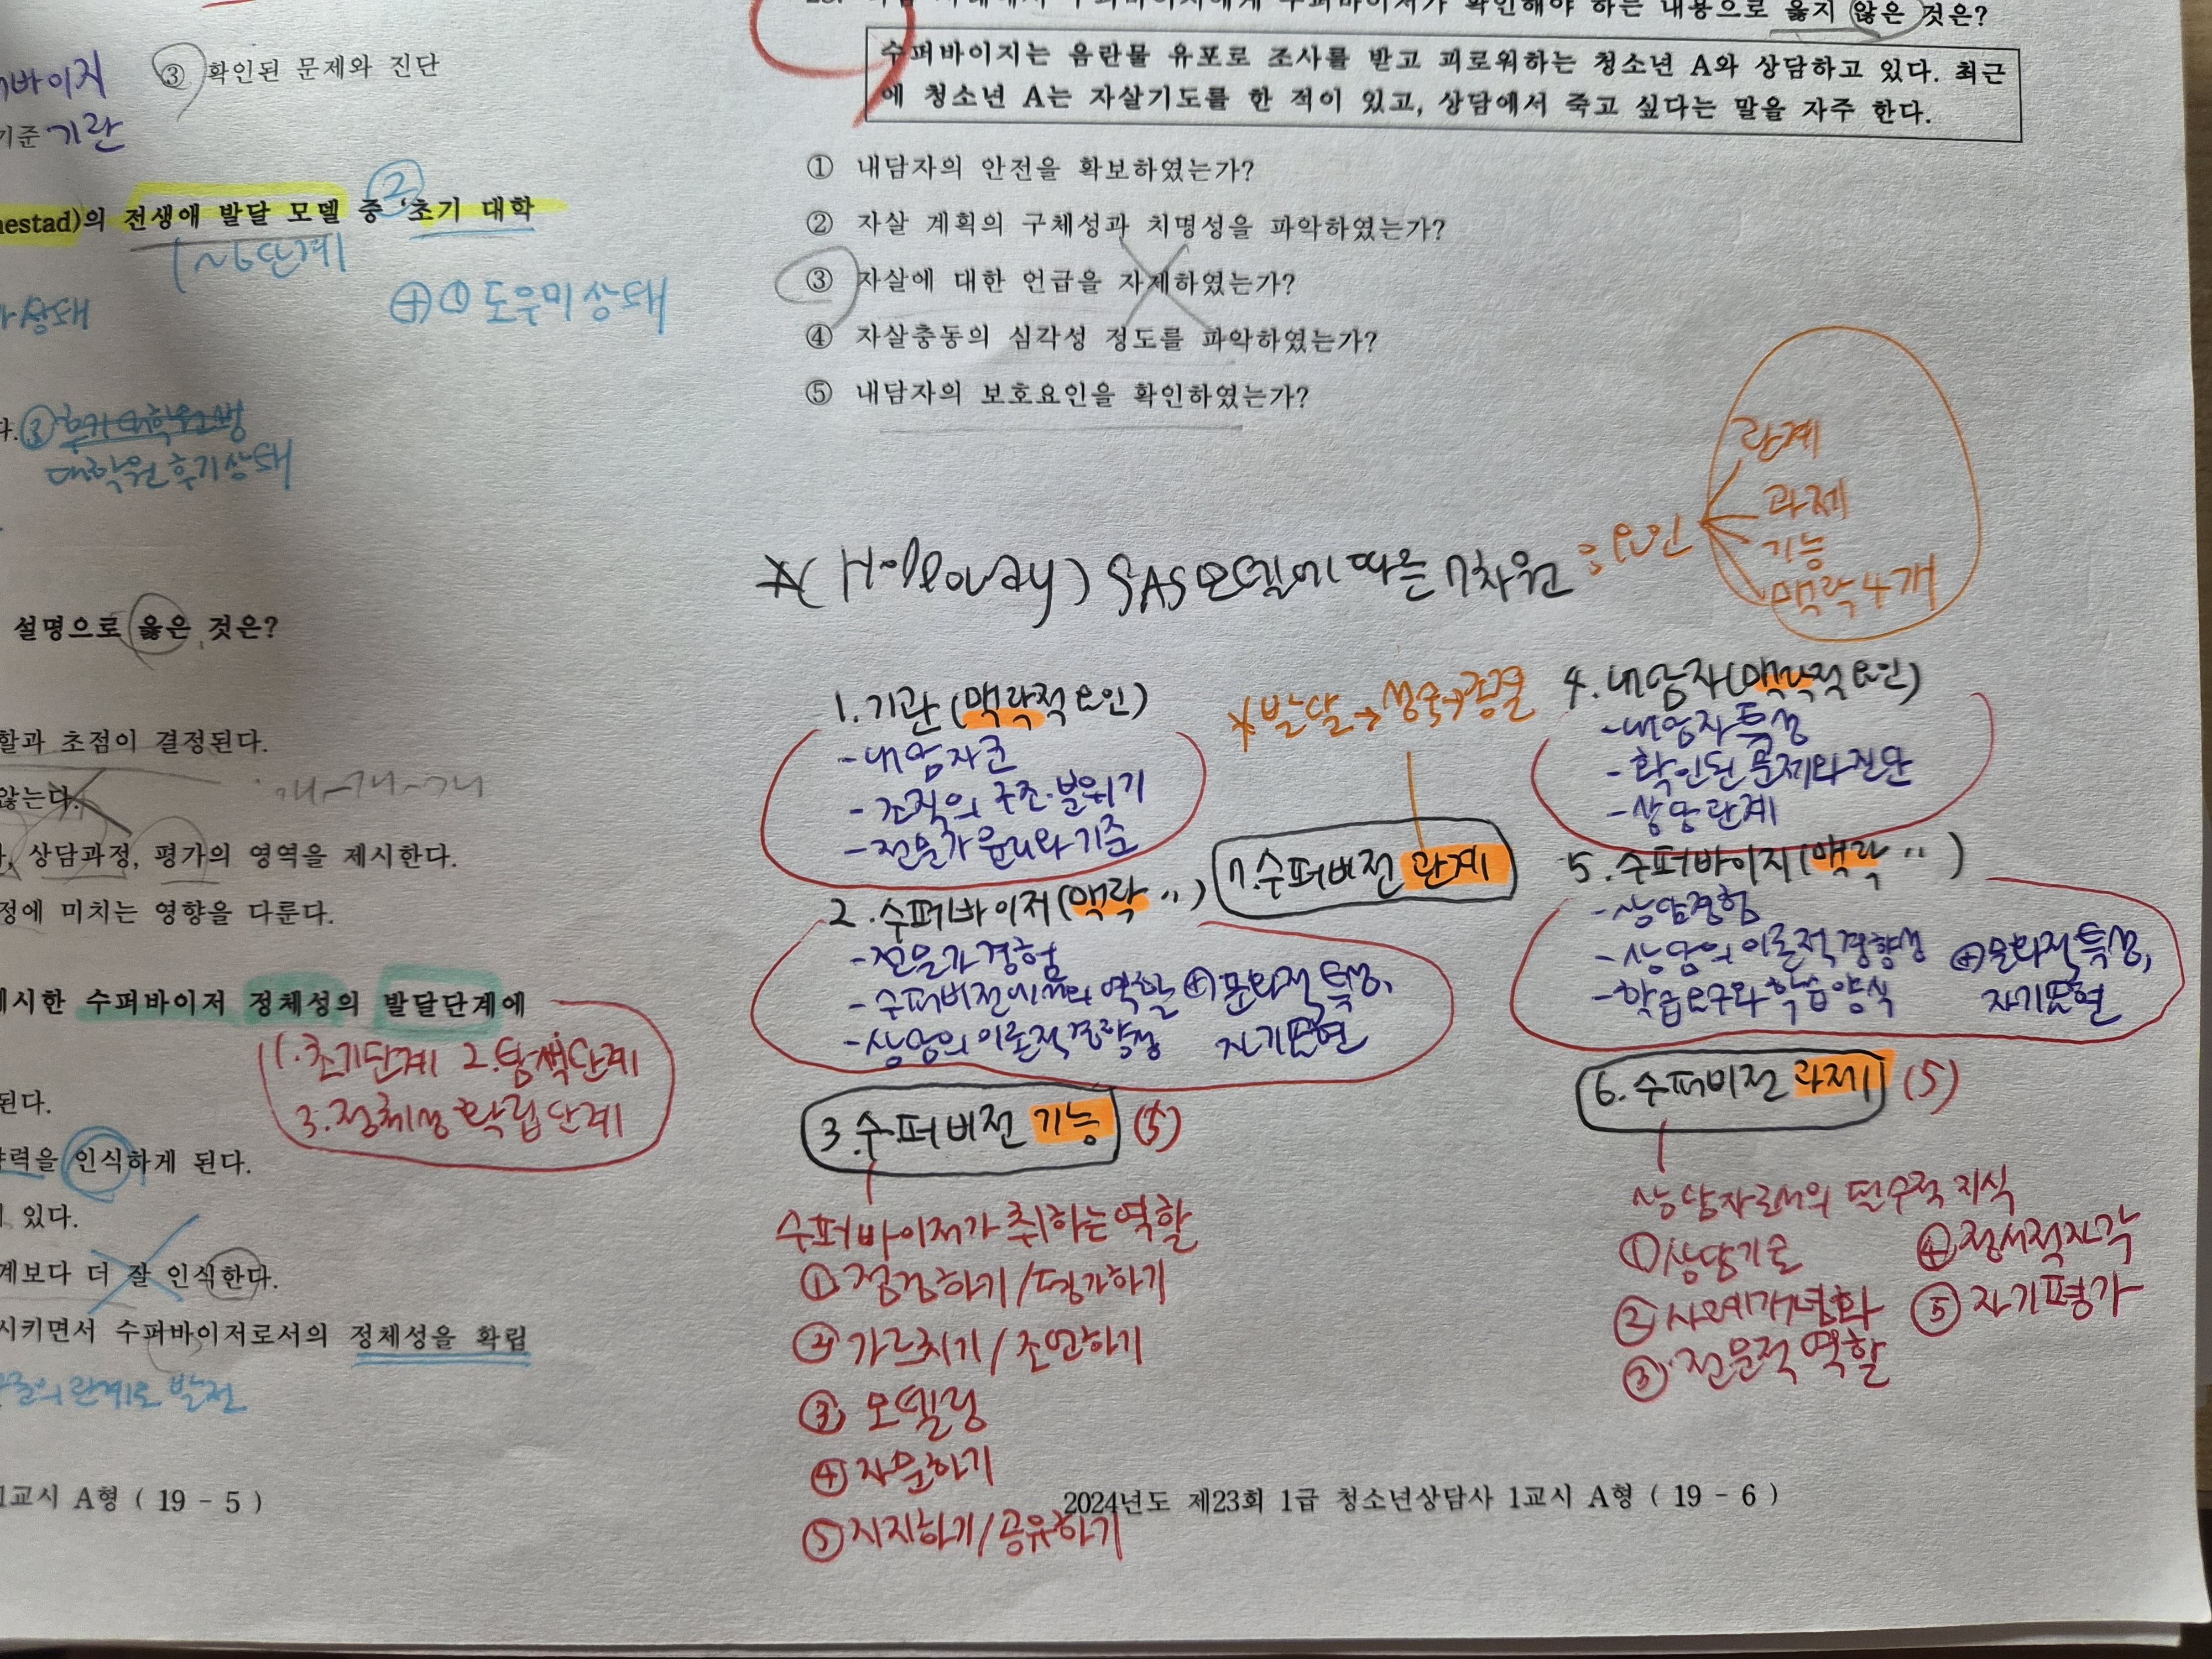 바이저
③ 확인된 문제와 진단
기준 기관
nestad)의 전생애 발달 모델 중 '초기 대학
②
1~6단계
상태
⊕ ① 도우미상태
다. ③
대학원 후기상태
설명으로 옳은 것은?
할과 초점이 결정된다.
않는다.
개-개-개
상담과정, 평가의 영역을 제시한다.
정에 미치는 영향을 다룬다.
제시한 수퍼바이저 정체성의 발달단계에
1.초기단계 2.탐색단계
3.정체성 확립단계
된다.
력을 인식하게 된다.
있다.
계보다 더 잘 인식한다.
시키면서 수퍼바이저로서의 정체성을 확립
관계로 발전
1교시 A형 ( 19 - 5 )
수퍼바이저가 확인해야 하는 내용으로 옳지 않은 것은?
수퍼바이지는 음란물 유포로 조사를 받고 괴로워하는 청소년 A와 상담하고 있다. 최근
에 청소년 A는 자살기도를 한 적이 있고, 상담에서 죽고 싶다는 말을 자주 한다.
① 내담자의 안전을 확보하였는가?
② 자살 계획의 구체성과 치명성을 파악하였는가?
③ 자살에 대한 언급을 자제하였는가?
④ 자살충동의 심각성 정도를 파악하였는가?
⑤ 내담자의 보호요인을 확인하였는가?
☆(Holloway) SAS모델에 따른 7차원 : 요인
관계
과제
기능
맥락 4개
1.기관(맥락적 요인)
-내담자군
-조직의 구조·분위기
-전문가 윤리와 기준
2.수퍼바이저(맥락 〃)
-전문가경험
-수퍼비전에서의 역할 ⊕문화적 특성,
-상담의 이론적경향성 자기표현
3.수퍼비전 기능 (5)
수퍼바이저가 취하는 역할
①점검하기/평가하기
②가르치기/조언하기
③ 모델링
④자문하기
⑤지지하기/공유하기
*발달→성숙→종결
7.수퍼비전 관계
4.내담자(맥락적 요인)
-내담자 특성
-확인된 문제와 진단
-상담관계
5.수퍼바이지(맥락 〃)
-상담경험
-상담의 이론적경향성 ⊕문화적 특성,
-학습요구와 학습양식 자기표현
6.수퍼비전 과제 (5)
상담자로서의 필수적 지식
①상담기술 ④정서적자각
②사례개념화 ⑤자기평가
③전문적 역할
2024년도 제23회 1급 청소년상담사 1교시 A형 ( 19 - 6 )